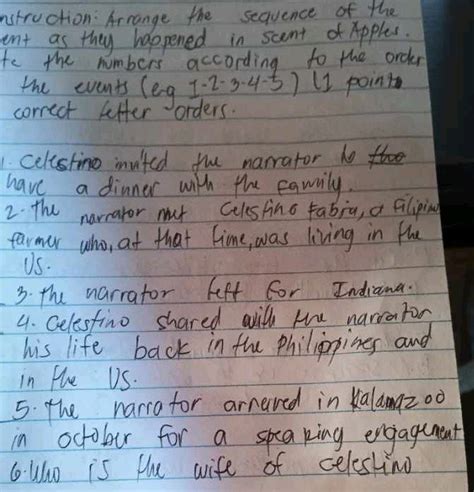 nstruction: Arrange the sequence of the
ent as they happened in scent of Apples.
te the numbers according to the order
the events (e.g 1-2-3-4-5) (1 points
correct letter orders.
1. Celestino invited the narrator to
have a dinner with the family.
2. The narrator met Celestino Fabia, a Filipino
farmer who, at that time, was living in the
US.
3. The narrator left for Indiana.
4. Celestino shared with the narrator
his life back in the Philippines and
in the US.
5. The narrator arrived in Kalamazoo
in october for a speaking engagement
6. Who is the wife of celestino